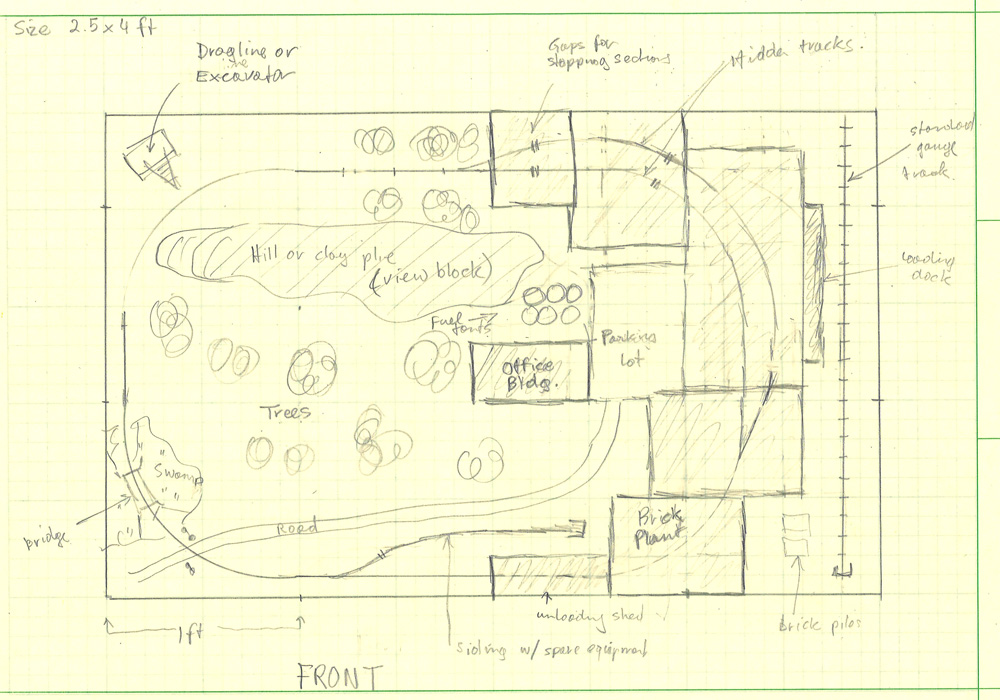 Size 2.5x4 ft
Dragline or
the
Excavator
Gaps for
stopping sections
Hidden tracks.
standard
gauge
track.
Hill or clay pile
(view block)
loading
dock
Fuel
Parking
Lot
Office
Bldg.
Trees
Swamp
bridge
Road
Brick
Plant
unloading shed
Brick piles
1ft
siding w/ spare equipment
FRONT